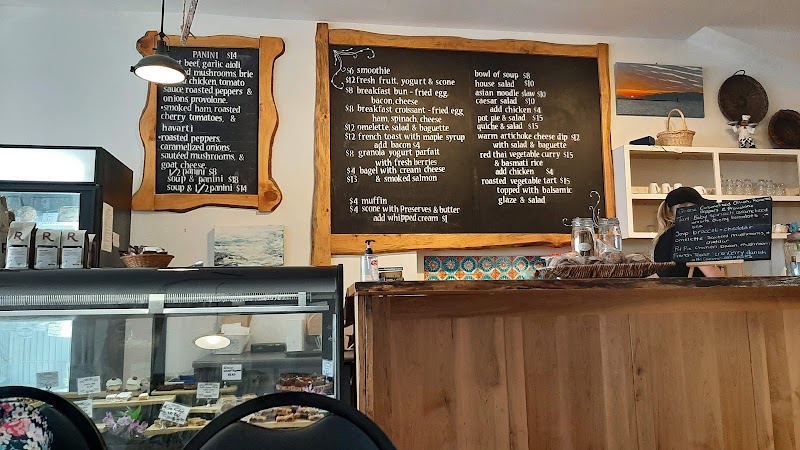 PANINI $14
beef, garlic aioli
mushrooms, brie
chicken, tomato
sauce, roasted peppers &
onions, provolone.
•smoked ham, roasted
cherry tomatoes, &
havarti
•roasted peppers,
caramelized onions,
sautéed mushrooms, &
goat cheese
1/2 panini $8
soup & panini $18
soup & 1/2 panini $14
$6 smoothie
$12 fresh fruit, yogurt & scone
$8 breakfast bun - fried egg,
bacon, cheese
breakfast croissant - fried egg,
ham, spinach, cheese
$12 omelette, salad & baguette
$12 french toast with maple syrup
add bacon $4
$8 granola yogurt parfait
with fresh berries
$4 bagel with cream cheese
$13 & smoked salmon
$4 muffin
$4 scone with Preserves & butter
add whipped cream $1
bowl of soup $8
house salad $10
asian noodle slaw $10
caesar salad $10
add chicken $4
pot pie & salad $15
quiche & salad $15
warm artichoke cheese dip $12
with salad & baguette
red thai vegetable curry $15
& basmati rice
add chicken $4
roasted vegetable tart $15
topped with balsamic
glaze & salad
R R R
Soup: broccoli + cheddar
omelette
cheddar
French Toast: cranberry danish